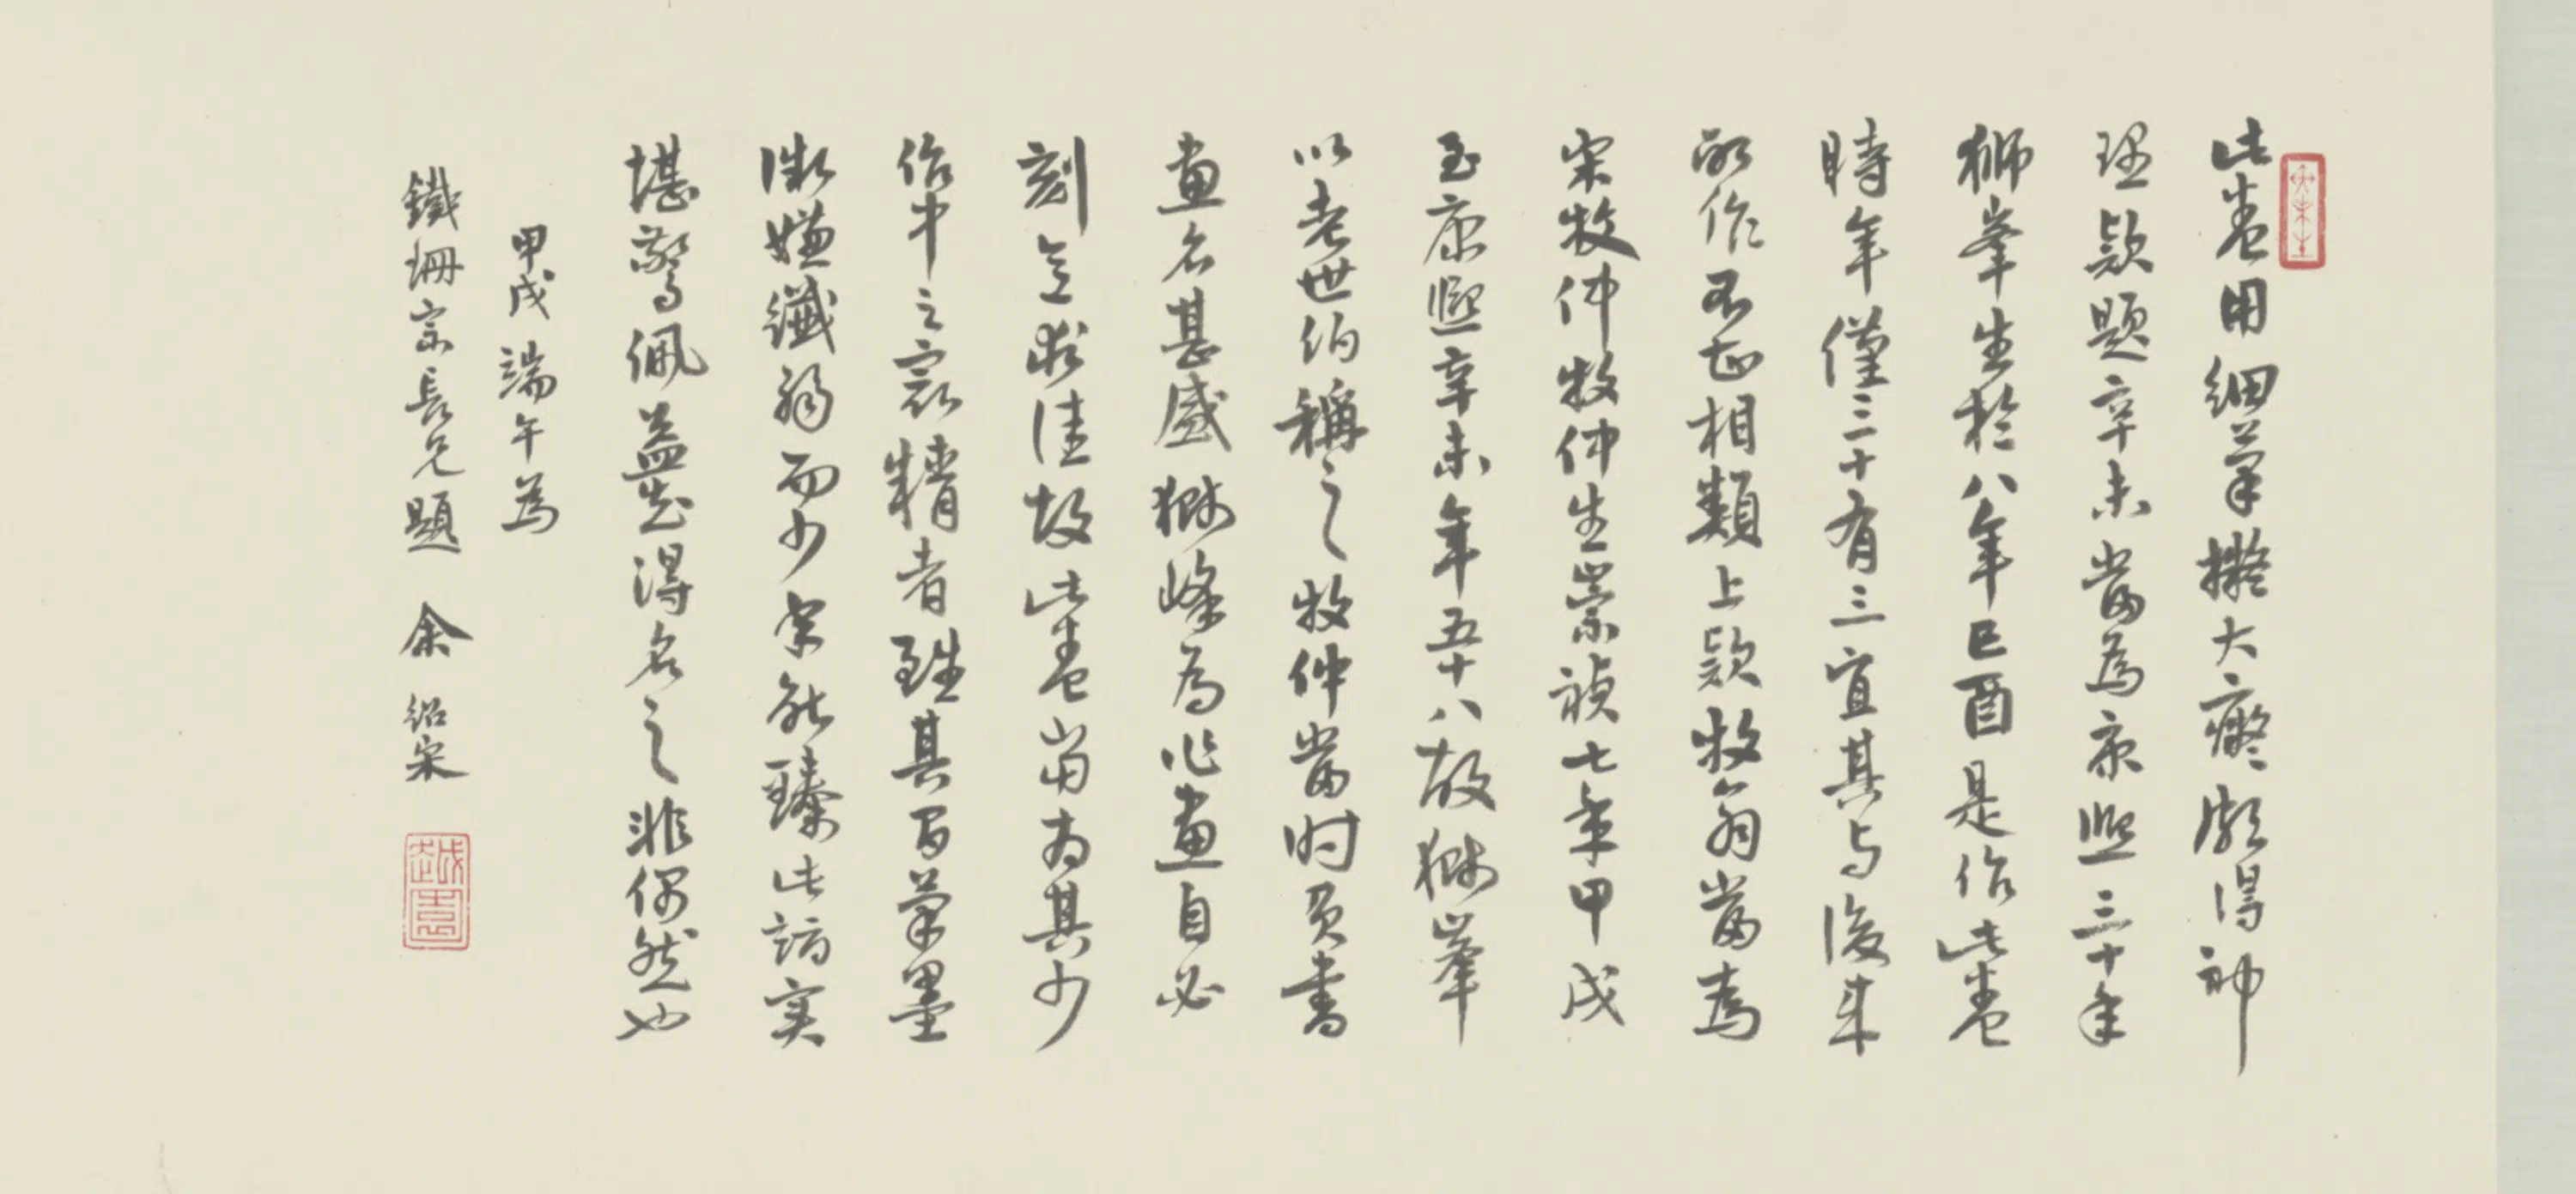 此卷用細筆擬大癡頗得神
理款題辛未當為康熙三十年
獅峯生於八年己酉是作此卷
時年僅二十有三宜其与後來
所作不甚相類上款牧翁當為
宋牧仲牧仲生崇禎七年甲戌
至康熙辛未年五十八故獅峯
以老世伯稱之牧仲當时負書
畫名甚盛獅峰為作畫自必
刻意求佳故此卷當為其少
作中之最精者雖其間筆墨
微嫌纖弱而少年能臻此詣实
堪驚佩益知得名之非偶然也
甲戌端午為
鐵珊宗長兄題 余紹宋
越園